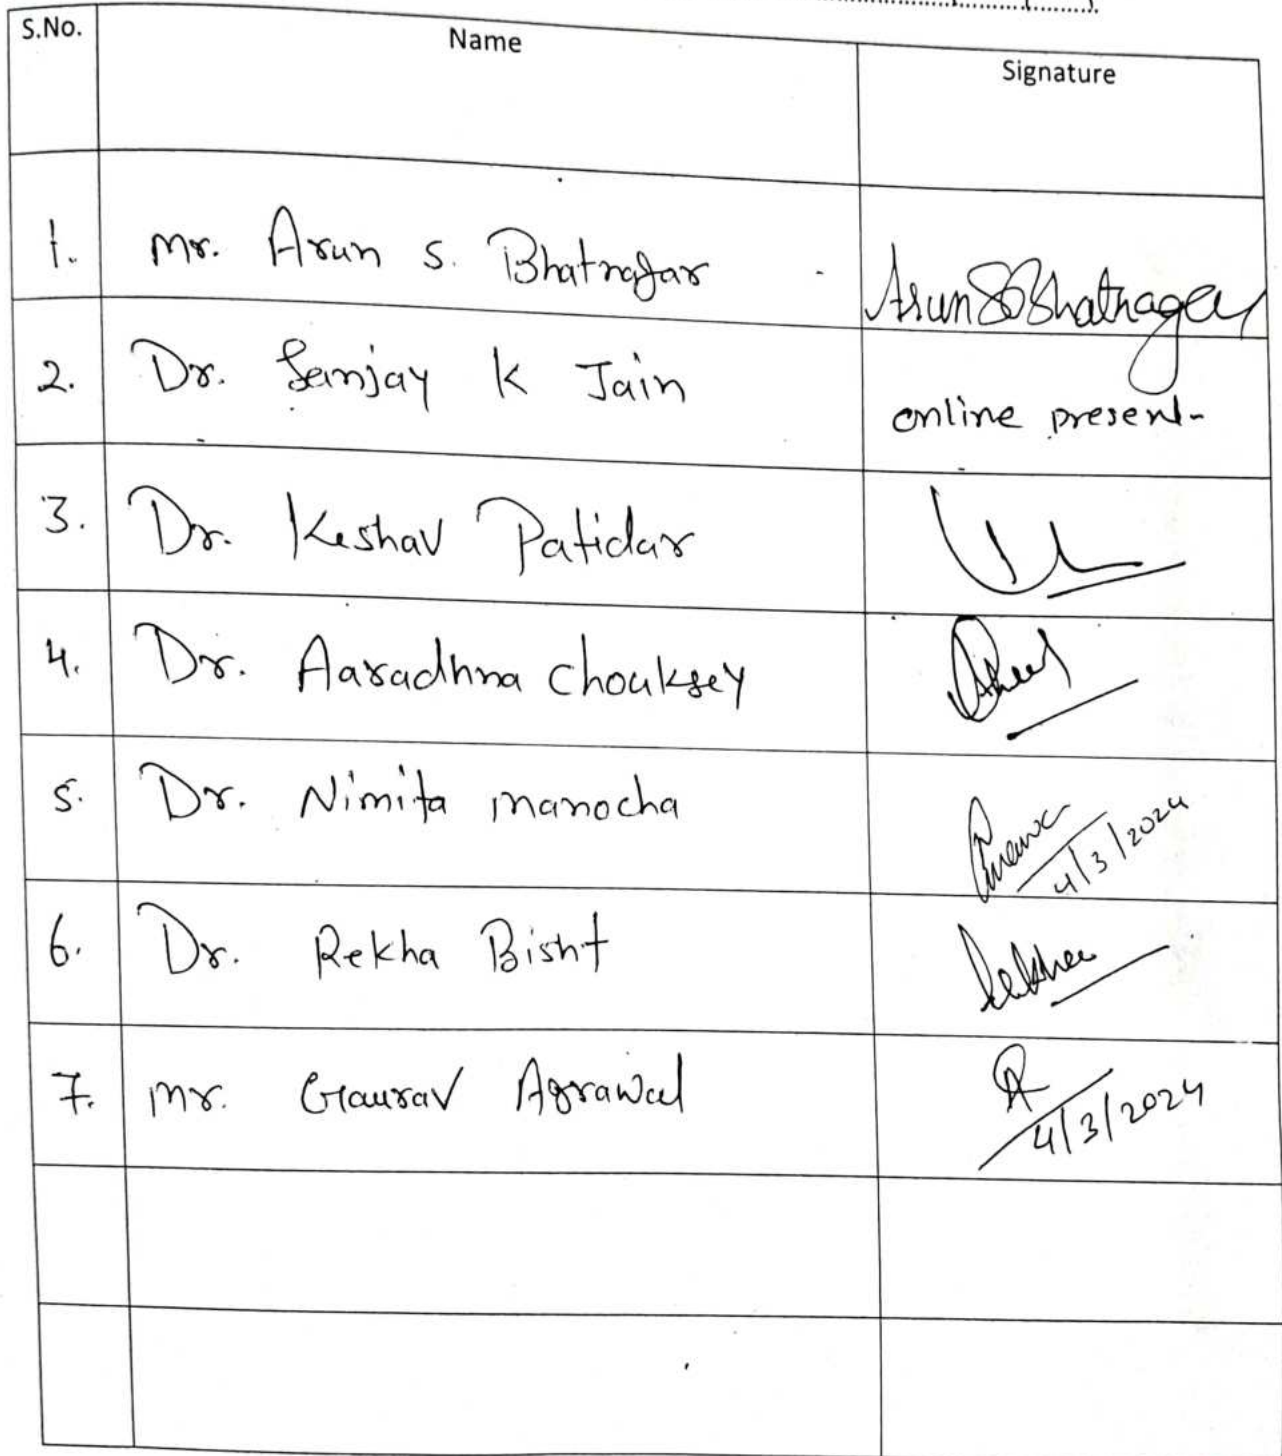 S.No. Name Signature
1. Mr. Arun S. Bhatnagar Arun S Bhatnagar
2. Dr. Sanjay K Jain online present
3. Dr. Keshav Patidar
4. Dr. Aaradhna Chouksey
5. Dr. Nimita Manocha 4/3/2024
6. Dr. Rekha Bisht Rekha
7. Mr. Gaurav Agrawal 4/3/2024